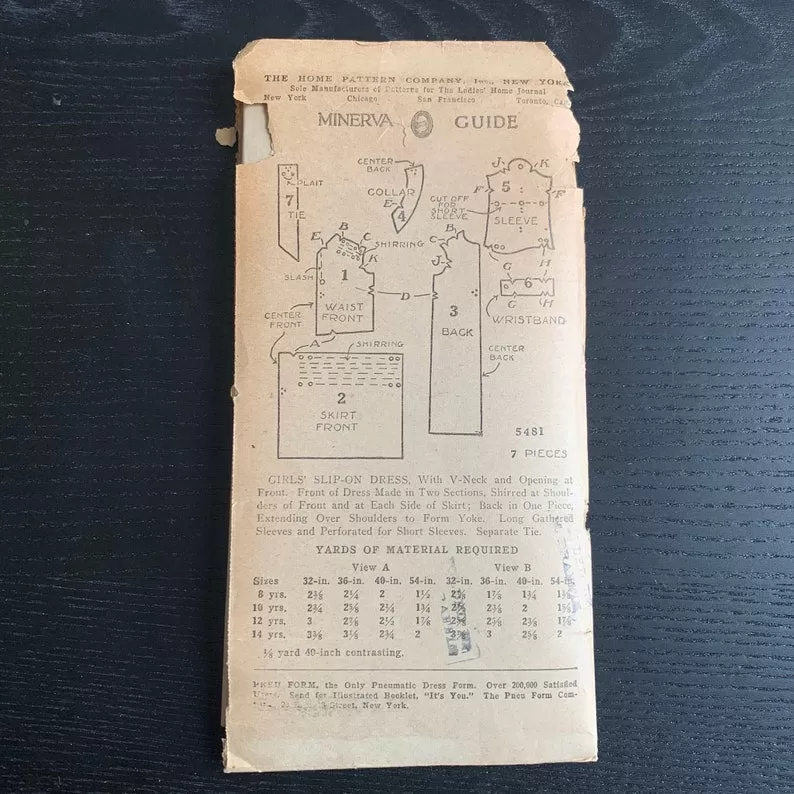 THE HOME PATTERN COMPANY, Inc., NEW YORK
Sole Manufacturers of Patterns for The Ladies' Home Journal
New York Chicago San Francisco Toronto, Can.
MINERVA GUIDE
CENTER BACK
PLAIT
7
TIE
COLLAR
E
4
J K
F 5 F
CUT OFF FOR SHORT SLEEVE
SLEEVE
G H
E B C SHIRRING
K
SLASH
1
WAIST FRONT
D
B
C
J
3
BACK
6
G H
WRISTBAND
CENTER FRONT
A SHIRRING
CENTER BACK
2
SKIRT FRONT
5481
7 PIECES
GIRLS' SLIP-ON DRESS, With V-Neck and Opening at
Front. Front of Dress Made in Two Sections, Shirred at Shoul-
ders of Front and at Each Side of Skirt; Back in One Piece,
Extending Over Shoulders to Form Yoke. Long Gathered
Sleeves and Perforated for Short Sleeves. Separate Tie.
YARDS OF MATERIAL REQUIRED
View A View B
Sizes 32-in. 36-in. 40-in. 54-in. 32-in. 36-in. 40-in. 54-in.
8 yrs. 2⅜ 2¼ 2 1½ 1⅞ 1¾
10 yrs. 2¾ 2⅝ 2¼ 1¾ 2⅜ 2
12 yrs. 3 2⅞ 2½ 1⅞ 2⅝ 2⅜
14 yrs. 3⅜ 3⅛ 2¾ 2 3 2⅝ 2
⅛ yard 40-inch contrasting.
PNEU FORM, the Only Pneumatic Dress Form. Over 200,000 Satisfied
Users. Send for Illustrated Booklet, "It's You." The Pneu Form Com-
Street, New York.